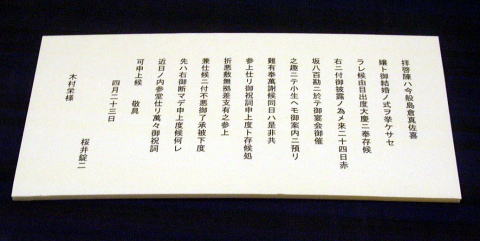 拝啓陳ハ今般島倉真佐喜
嬢ト御結婚ノ式ヲ挙ケサセ
ラレ候由目出度大慶ニ奉存候
右ニ付御披露ノ為メ來二十四日赤
坂八百勘ニ於テ御宴会御催
之趣ニテ小生ヘモ御案内ニ預リ
難有奉萬謝候同日ハ是非共
参上仕リ御祝詞申上度ト存候処
折悪敷無拠差支有之参上
兼仕候ニ付不悪御了承被下度
先ハ右御断マデ申上度候何レ
近日ノ内参堂仕リ萬々御祝詞
可申上候 敬具
四月二十三日
桜井錠二
木村栄様